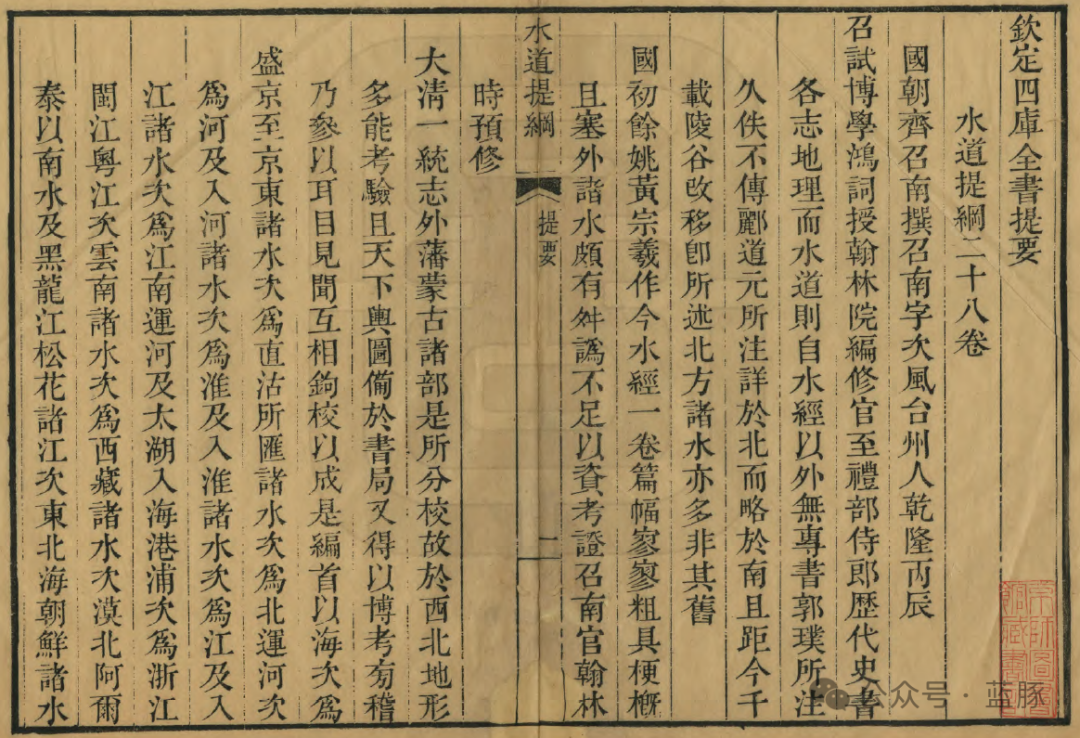 欽定四庫全書提要
水道提綱二十八卷
國朝齊召南撰召南字次風台州人乾隆丙辰
召試博學鴻詞授翰林院編修官至禮部侍郎歷代史書
各志地理而水道則自水經以外無專書郭璞所注
久佚不傳酈道元所注詳於北而略於南且距今千
載陵谷改移卽所述北方諸水亦多非其舊
國初餘姚黃宗羲作今水經一卷篇幅寥寥粗具梗概
且塞外諸水頗有舛譌不足以資考證召南官翰林
水道提綱
提要
一
時預修
大淸一統志外藩蒙古諸部是所分校故於西北地形
多能考驗且天下輿圖備於書局又得以博考旁稽
乃參以耳目見聞互相鉤校以成是編首以海次爲
盛京至京東諸水次爲直沽所匯諸水次爲北運河次
爲河及入河諸水次爲淮及入淮諸水次爲江及入
江諸水次爲江南運河及太湖入海港浦次爲浙江
閩江粵江次雲南諸水次爲西藏諸水次漠北阿爾
泰以南水及黑龍江松花諸江次東北海朝鮮諸水
京師圖書館藏書
公众号·蓝豚